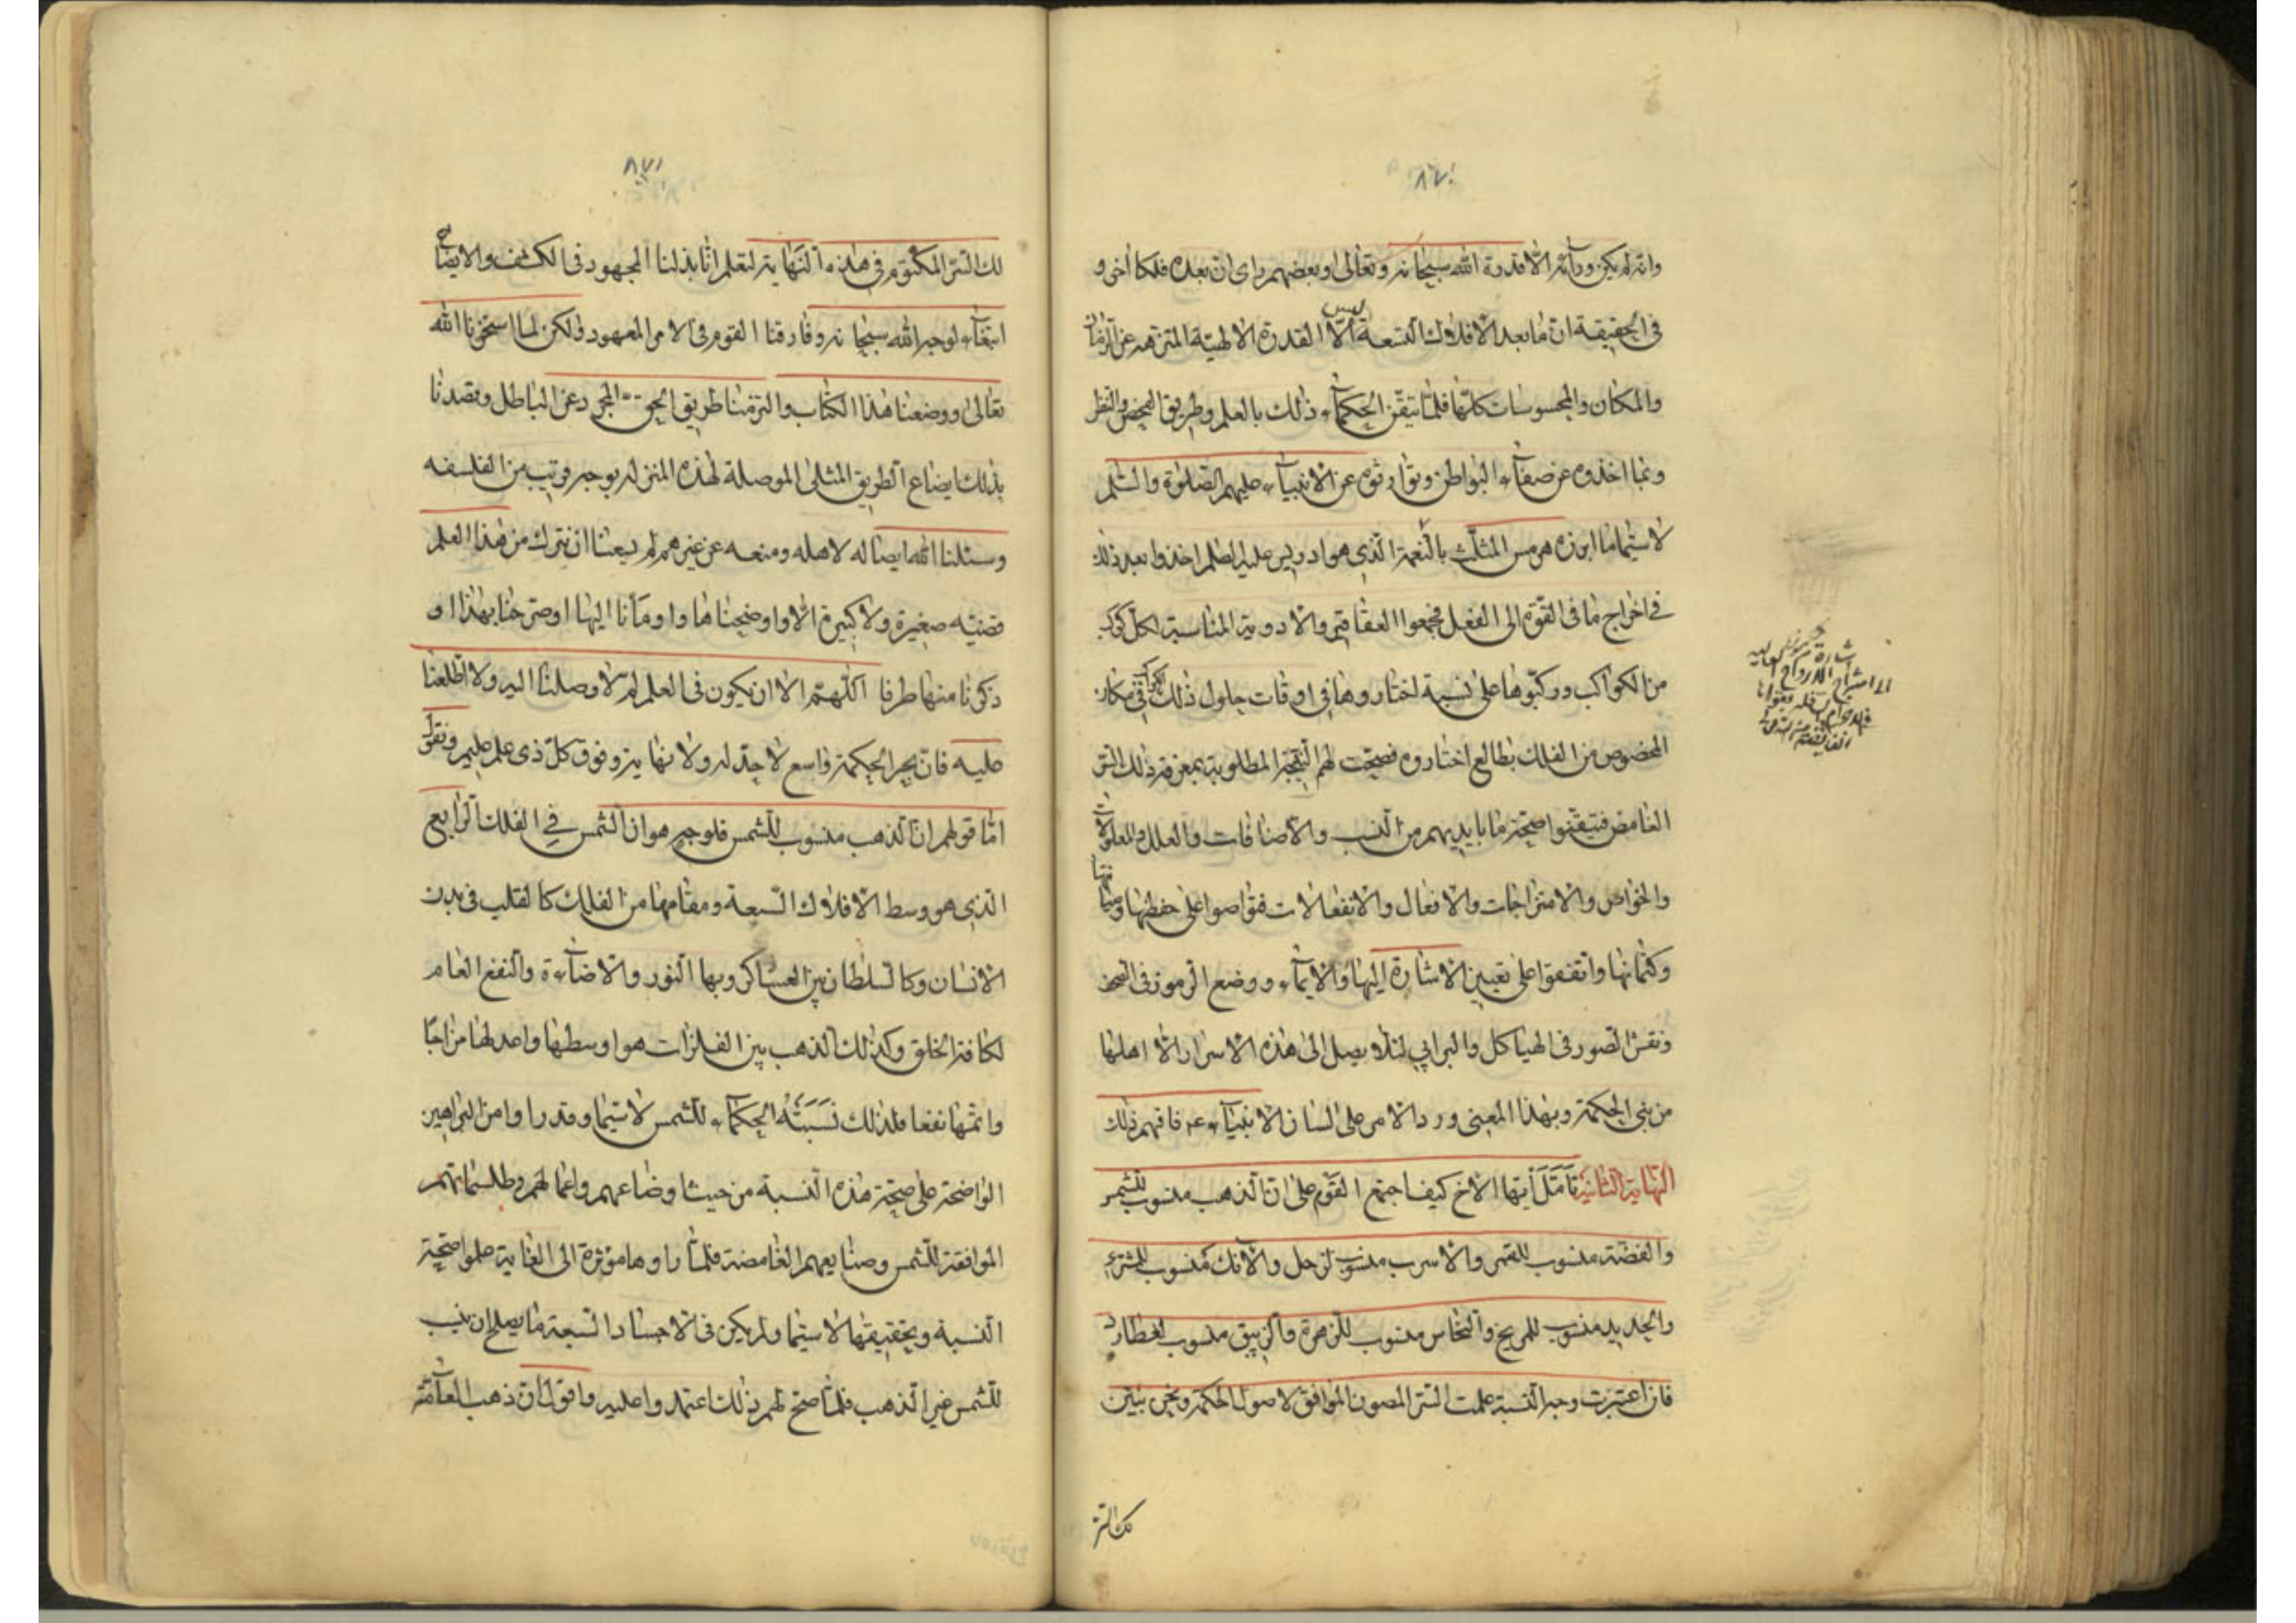 ٨٧٠
وانه لم يكن وراءه الا قدرة الله سبحانه وتعالى وبعضهم راى ان بعده فلكا اخر و
فى الحقيقة ان ما بعد الافلاك التسعة ليس الا القدرة الالهية المنزهة عن الزمان
والمكان والمحسوسات كلها فلما تيقن الحكماء ذلك بالعلم وطريق الفحص والنظر
ومما اخذوه عن صفاء البواطن وتوارثوه عن الانبياء عليهم الصلوة والسلم
لا سيما ما ابرزه هرمس المثلث بالنعمة الذى هو ادريس عليه السلم اخذوا بعد ذلك
فى اخراج ما فى القوة الى الفعل فجمعوا العقاقير والادوية المناسبة لكل كوكب
من الكواكب وركبوها على نسبة اختاروها فى اوقات حلول ذلك الكوكب فى مكان
المخصوص من الفلك بطالع اختاروه فصحت لهم النتيجة المطلوبة بمعرفة ذلك السر
الغامض فتيقنوا صحة ما بايديهم من النسب والاضافات والعلل والمعلولات
والخواص والامتزاجات والافعال والانفعالات فتواصوا على حفظها وصيانتها
وكتمانها واتفقوا على تعيين الاشارة اليها والايماء ووضع الرموز فى الصحف
ونقش الصور فى الهياكل والبرابى لئلا يصل الى هذه الاسرار الا اهلها
من بنى الحكمة وبهذا المعنى ورد الامر على لسان الانبياء عم فافهم ذلك
النهاية الثانية تأمل أيها الاخ كيف اجتمع القوم على ان الذهب منسوب للشمس
والفضة منسوب للقمر والاسرب منسوب لزحل والآنك منسوب للمشترى
والحديد منسوب للمريخ والنحاس منسوب للزهرة والزيبق منسوب لعطارد
فان اعتبرت وجه النسبة علمت السر المصون الموافق لاصول الحكمة ونحن نبين
لك السر
٨٧١
لك السر المكتوم فى هذه النهاية لتعلم انا بذلنا المجهود فى الكشف والايضاح
ابتغاء لوجه الله سبحانه وفارقنا القوم فى الامر المعهود ولكن لما استخرنا الله
تعالى ووضعنا هذا الكتاب والتزمنا طريق الحق المجرد عن الباطل وقصدنا
بذلك ايضاع الطريق المثلى الموصلة لهذه المنزلة بوجه قريب من الفلسفه
وسئلنا الله ايصاله لاهله ومنعه عن غيرهم لم يسعنا ان نترك من هذا العلم
قضيه صغيرة ولا كبيرة الا واوضحناها واومأنا اليها او صرحنا بهذا او
ذكرنا منها طرفا اللهم الا ان يكون فى العلم لم لا وصلنا اليه ولا اطلعنا
عليه فان بحر الحكمة واسع لا حد له ولا نهاية وفوق كل ذى علم عليم ونقول
اما قولهم ان الذهب منسوب للشمس فلوجه هو ان الشمس فى الفلك الرابع
الذى هو وسط الافلاك السبعة ومقامها من الفلك كالقلب فى بدن
الانسان وكالسلطان بين العساكر وبها النور والاضاءة والنفع العام
لكافة الخلق وكذلك الذهب بين الفلزات هو اوسطها واعدلها مزاجا
واتمها نفعا فلذلك نسبته الحكماء للشمس لا سيما وقد راوا من البراهين
الواضحة على صحة هذه النسبة من حيث اوضاعهم واعمالهم وطلسماتهم
الموافقة للشمس وصنايعهم الغامضة فلما راوها مؤثرة الى الغاية علموا صحة
النسبة وتحقيقها لا سيما ولم يكن فى الاجساد السبعة ما يصلح ان ينسب
للشمس غير الذهب فلما صح لهم ذلك اعتمدوا عليه واقول ان ذهب العامة